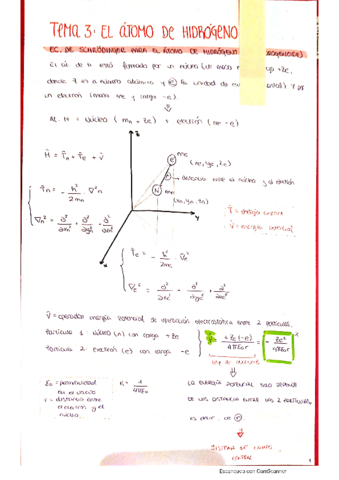 TEMA 3: EL ÁTOMO DE HIDRÓGENO
EC. DE SCHRÖDINGER PARA EL ÁTOMO DE HIDRÓGENO
El át. de H está formado por un núcleo +Ze,
donde Z es el número atómico y e la unidad de Y DE
un electrón (masa me y carga -e).
At. H = núcleo (mn, +Ze) + electrón (me, -e)
Ĥ = T̂n + T̂e + V̂
z
e
me
(xe, ye, ze)
r
→ distancia entre el núcleo y el electrón
N
(xn, yn, zn)
x
y
T̂n = - ħ²/2mn ∇²n
∇n² = ∂²/∂xn² + ∂²/∂yn² + ∂²/∂zn²
T̂ = energía cinética
V̂ = energía potencial
T̂e = - ħ²/2me ∇e²
∇e² = ∂²/∂xe² ∂²/∂ye² ∂²/∂ze²
V̂ = operador energía potencial de interacción electrostática entre 2 partículas.
Partícula 1: núcleo (n) con carga +Ze
Partícula 2: electrón (e) con carga -e
+Ze(-e)/4πε₀r = - Ze²/4πε₀r
ley de Coulomb
ε₀ = permitividad en el vacío
r = distancia entre electrón y el núcleo.
K = 1/4πε₀
LA ENERGÍA POTENCIAL SOLO DEPENDE
DE LA DISTANCIA ENTRE LAS 2 PARTÍCULAS,
es decir, de r.
SISTEMA DE CAMPO
CENTRAL
1
Escaneado con CamScanner